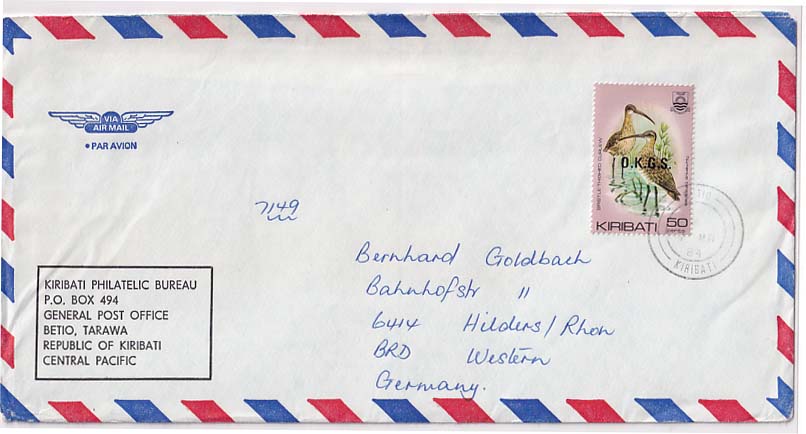 VIA
AIR MAIL
•PAR AVION
7149
BRISTLE-THIGHED CURLEW
O.K.G.S.
KIRIBATI 50
84
KIRIBATI
Bernhard Goldbach
Bahnhofstr 11
6414 Hilders/Rhon
BRD Western
Germany.
KIRIBATI PHILATELIC BUREAU
P.O. BOX 494
GENERAL POST OFFICE
BETIO, TARAWA
REPUBLIC OF KIRIBATI
CENTRAL PACIFIC